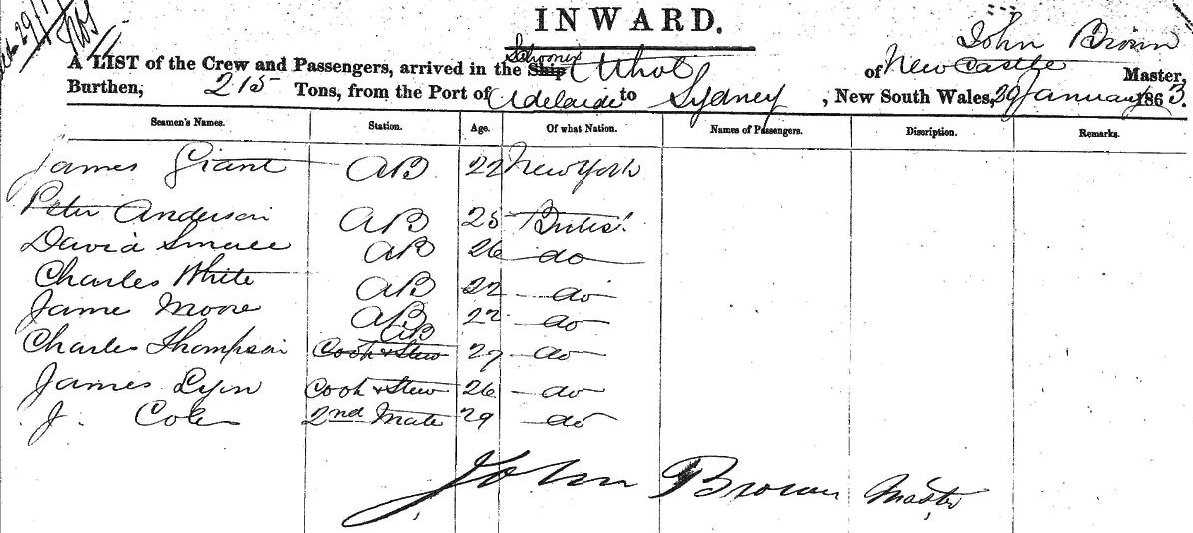 INWARD.
John Brown
Schooner
A LIST of the Crew and Passengers, arrived in the Ship of New Castle Master,
Burthen, 215 Tons, from the Port of Adelaide to Sydney, New South Wales, 29 January 1863.
Seamen's Names. Station. Age. Of what Nation. Names of Passengers. Discription. Remarks.
James Giant AB 22 New York
Peter Anderson AB 25 Britis
David Smale AB 26 do
Charles White AB 22 do
Jame Moore AB 22 do
AB
Charles Thompson Cook & Stew 27 do
James Lyon Cook & Stew 26 do
J. Cole 2nd Mate 29 do
John Brown Master